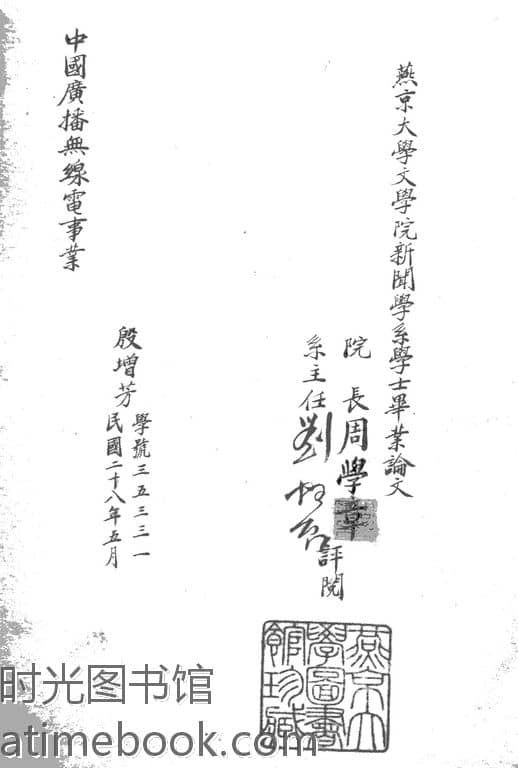 燕京大學文學院新聞學系學士畢業論文
院長周學章
系主任劉
評閱
殷增芳
學號三五三三一
民國二十八年五月
中國廣播無線電事業
燕京大
學圖書
館珍藏
时光图书馆
atimebook.com